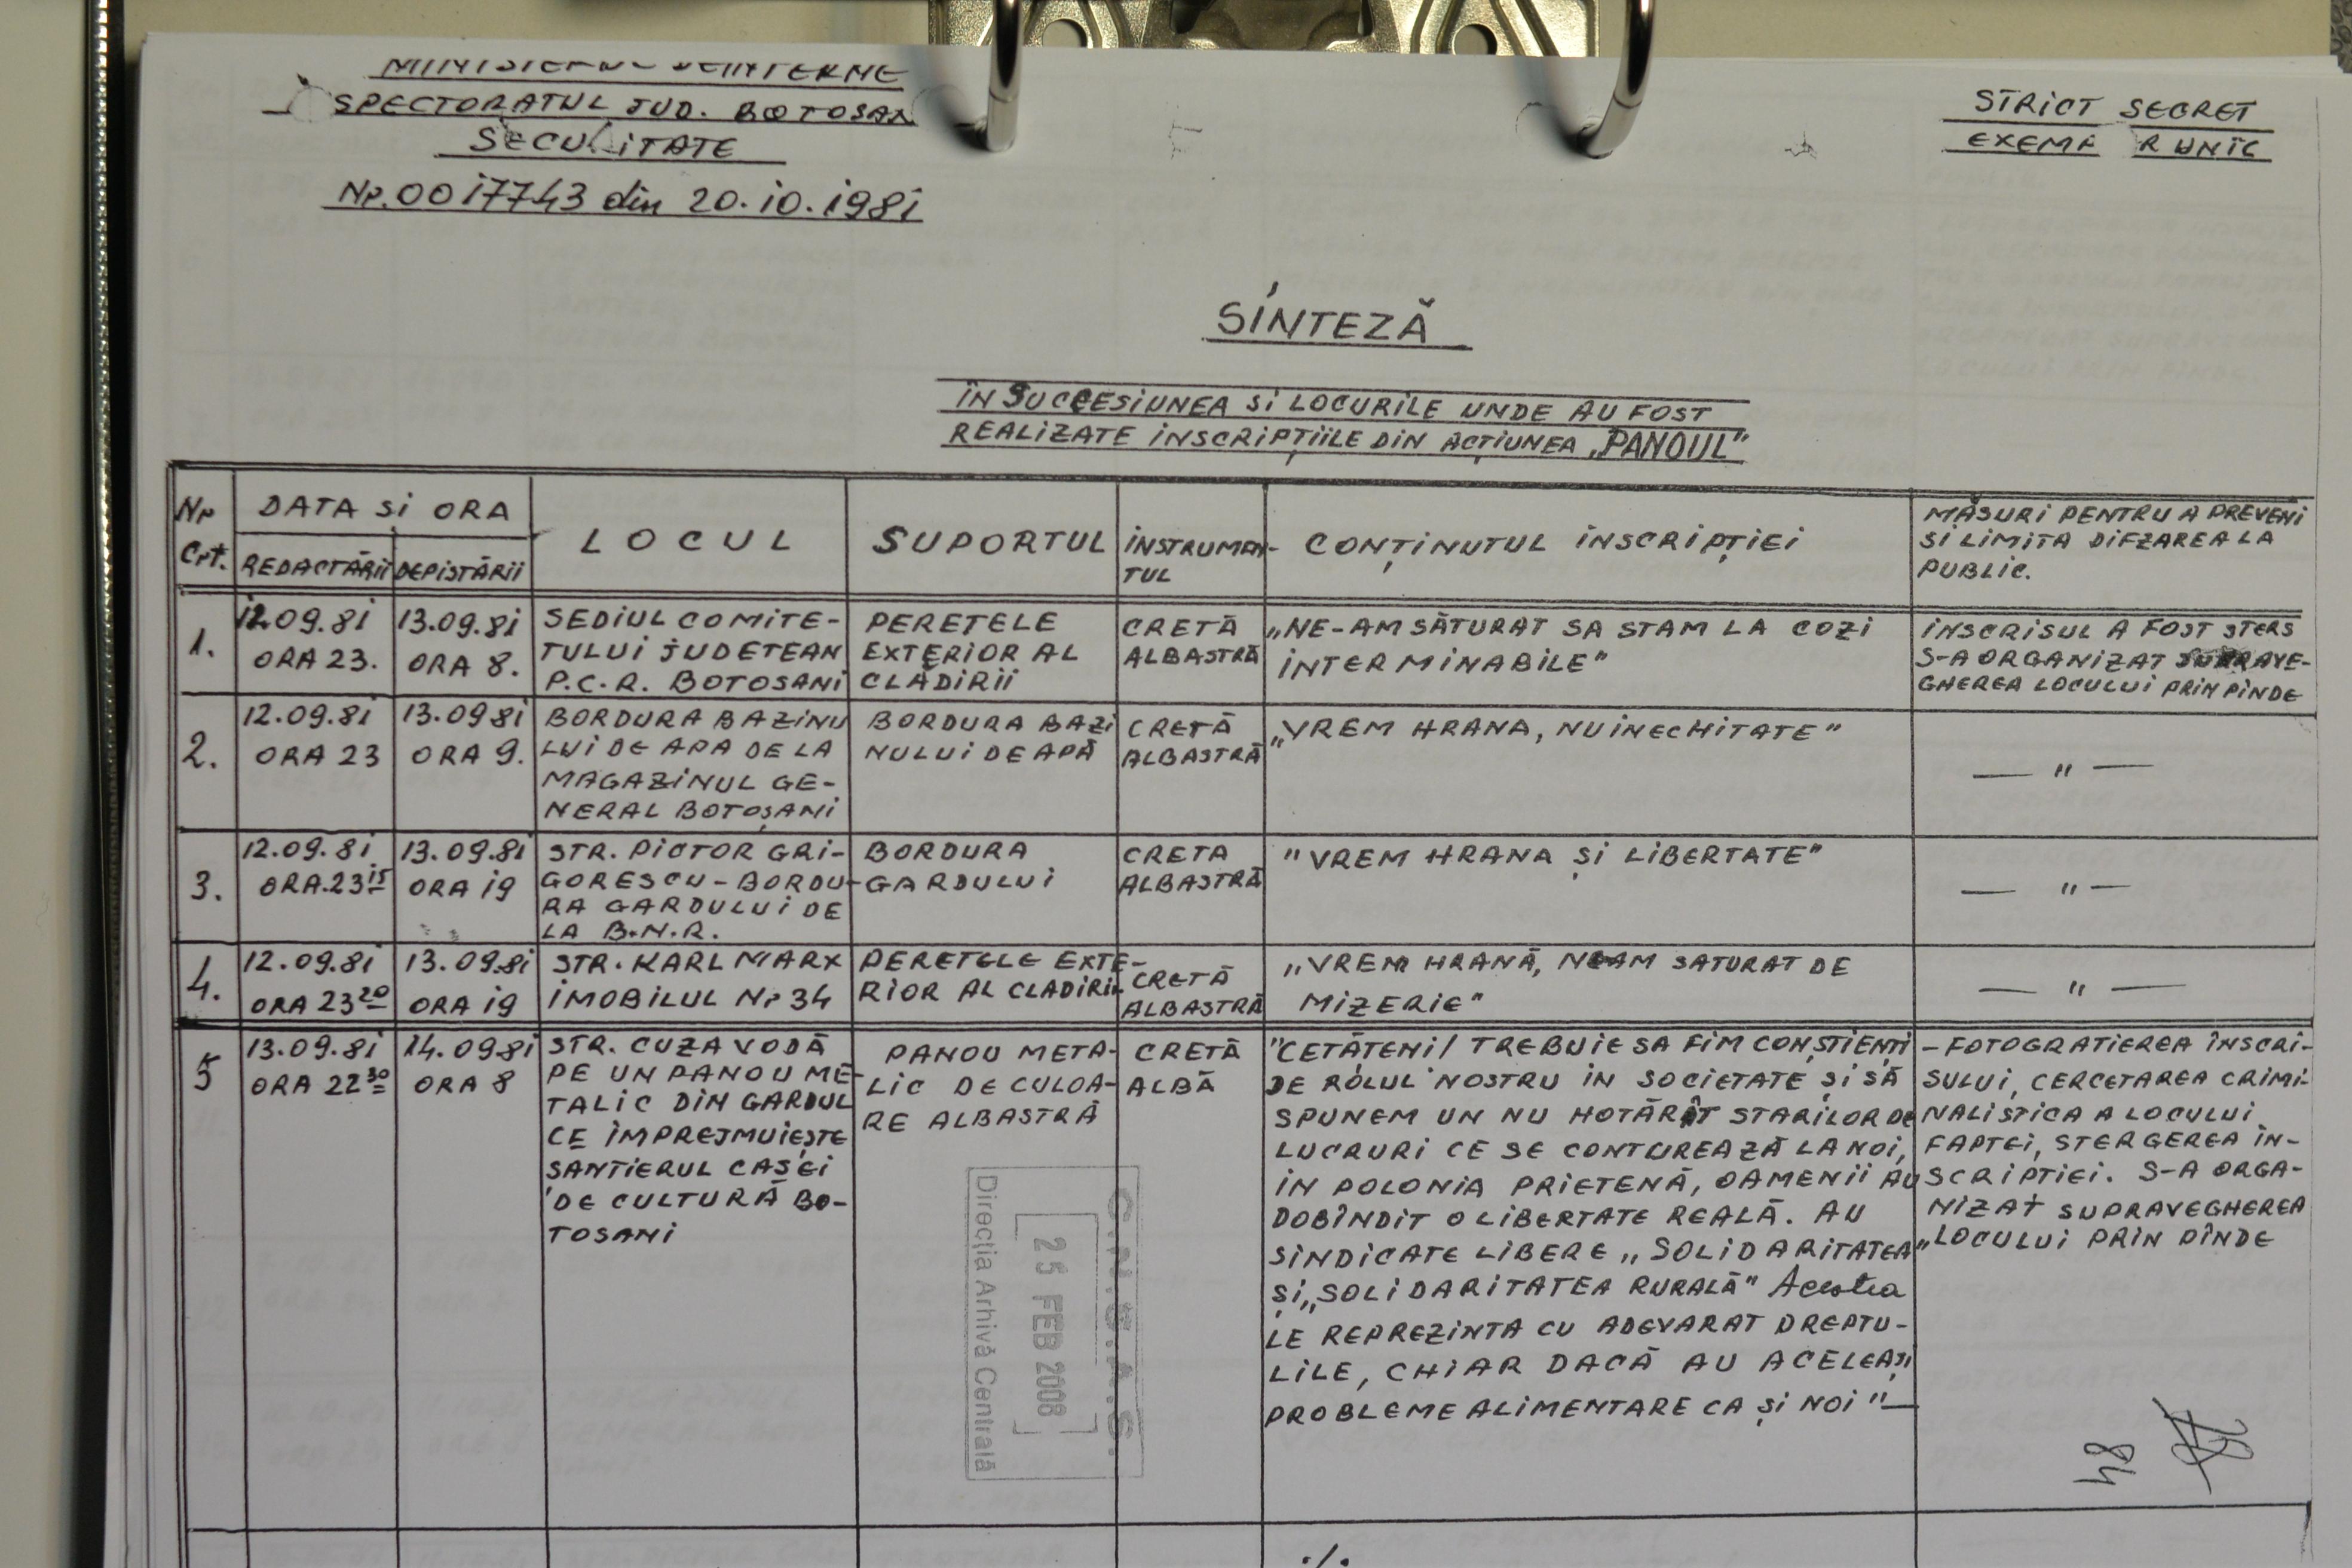 MINISTERUL DE INTERNE
SPECTORATUL JUD. BOTOSAN
SECURITATE
Nr. 0017743 din 20.10.1981
STRICT SECRET
EXEMP R UNIC
SINTEZĂ
IN SUCCESIUNEA SI LOCURILE UNDE AU FOST
REALIZATE INSCRIPȚIILE DIN ACȚIUNEA „PANOUL"
Nr Crt.
DATA SI ORA
REDACTĂRII
DEPISTĂRII
LOCUL
SUPORTUL
INSTRUMEN-
TUL
CONȚINUTUL INSCRIPȚIEI
MĂSURI PENTRU A PREVENI
SI LIMITA DIFZAREA LA
PUBLIC.
1.
12.09.81
ORA 23.
13.09.81
ORA 8.
SEDIUL COMITE-
TULUI JUDETEAN
P.C.R. BOTOSANI
PERETELE
EXTERIOR AL
CLĂDIRII
CRETĂ
ALBASTRĂ
„NE-AM SĂTURAT SA STAM LA COZI
INTERMINABILE"
INSCRISUL A FOST STERS
S-A ORGANIZAT SUPRAVE-
GHEREA LOCULUI PRIN PINDE
2.
12.09.81
ORA 23
13.0981
ORA 9.
BORDURA BAZINU
LUI DE APA DE LA
MAGAZINUL GE-
NERAL BOTOȘANI
BORDURA BAZI
NULUI DE APĂ
CRETĂ
ALBASTRĂ
„VREM HRANA, NU INECHITATE"
— " —
3.
12.09.81
ORA.23 15
13.09.81
ORA 19
STR. PICTOR GRI-
GORESCU - BORDU-
RA GARDULUI DE
LA B.N.R.
BORDURA
GARDULUI
CRETA
ALBASTRĂ
"VREM HRANA ȘI LIBERTATE"
— " —
4.
12.09.81
ORA 23 20
13.09.81
ORA 19
STR. KARL MARX
IMOBILUL Nr 34
PERETELE EXTE-
RIOR AL CLADIRII
CRETĂ
ALBASTRĂ
„VREM HRANĂ, NE-AM SATURAT DE
MIZERIE"
— " —
5
13.09.81
ORA 22 30
14.0981
ORA 8
STR. CUZA VODĂ
PE UN PANOU ME-
TALIC DIN GARDUL
CE IMPREJMUIEȘTE
SANTIERUL CASEI
DE CULTURĂ BO-
TOSANI
PANOU META-
LIC DE CULOA-
RE ALBASTRĂ
CRETĂ
ALBĂ
"CETĂTENI! TREBUIE SA FIM CONȘTIENȚI
DE ROLUL NOSTRU IN SOCIETATE ȘI SĂ
SPUNEM UN NU HOTĂRÂT STARILOR DE
LUCRURI CE SE CONTUREAZĂ LA NOI,
IN POLONIA PRIETENĂ, OAMENII AU
DOBÎNDIT O LIBERTATE REALĂ. AU
SINDICATE LIBERE „SOLIDARITATEA"
ȘI „SOLIDARITATEA RURALĂ" Acestea
LE REPREZINTA CU ADEVARAT DREPTU-
LILE, CHIAR DACĂ AU ACELEAȘI
PROBLEME ALIMENTARE CA ȘI NOI" —
- FOTOGRAFIEREA INSCRI-
SULUI, CERCETAREA CRIMI-
NALISTICA A LOCULUI
FAPTEI, STERGEREA IN-
SCRIPTIEI. S-A ORGA-
NIZAT SUPRAVEGHEREA
LOCULUI PRIN PÎNDE
C.N.S.A.S.
25 FEB 2008
Direcția Arhivă Centrală
84
./.